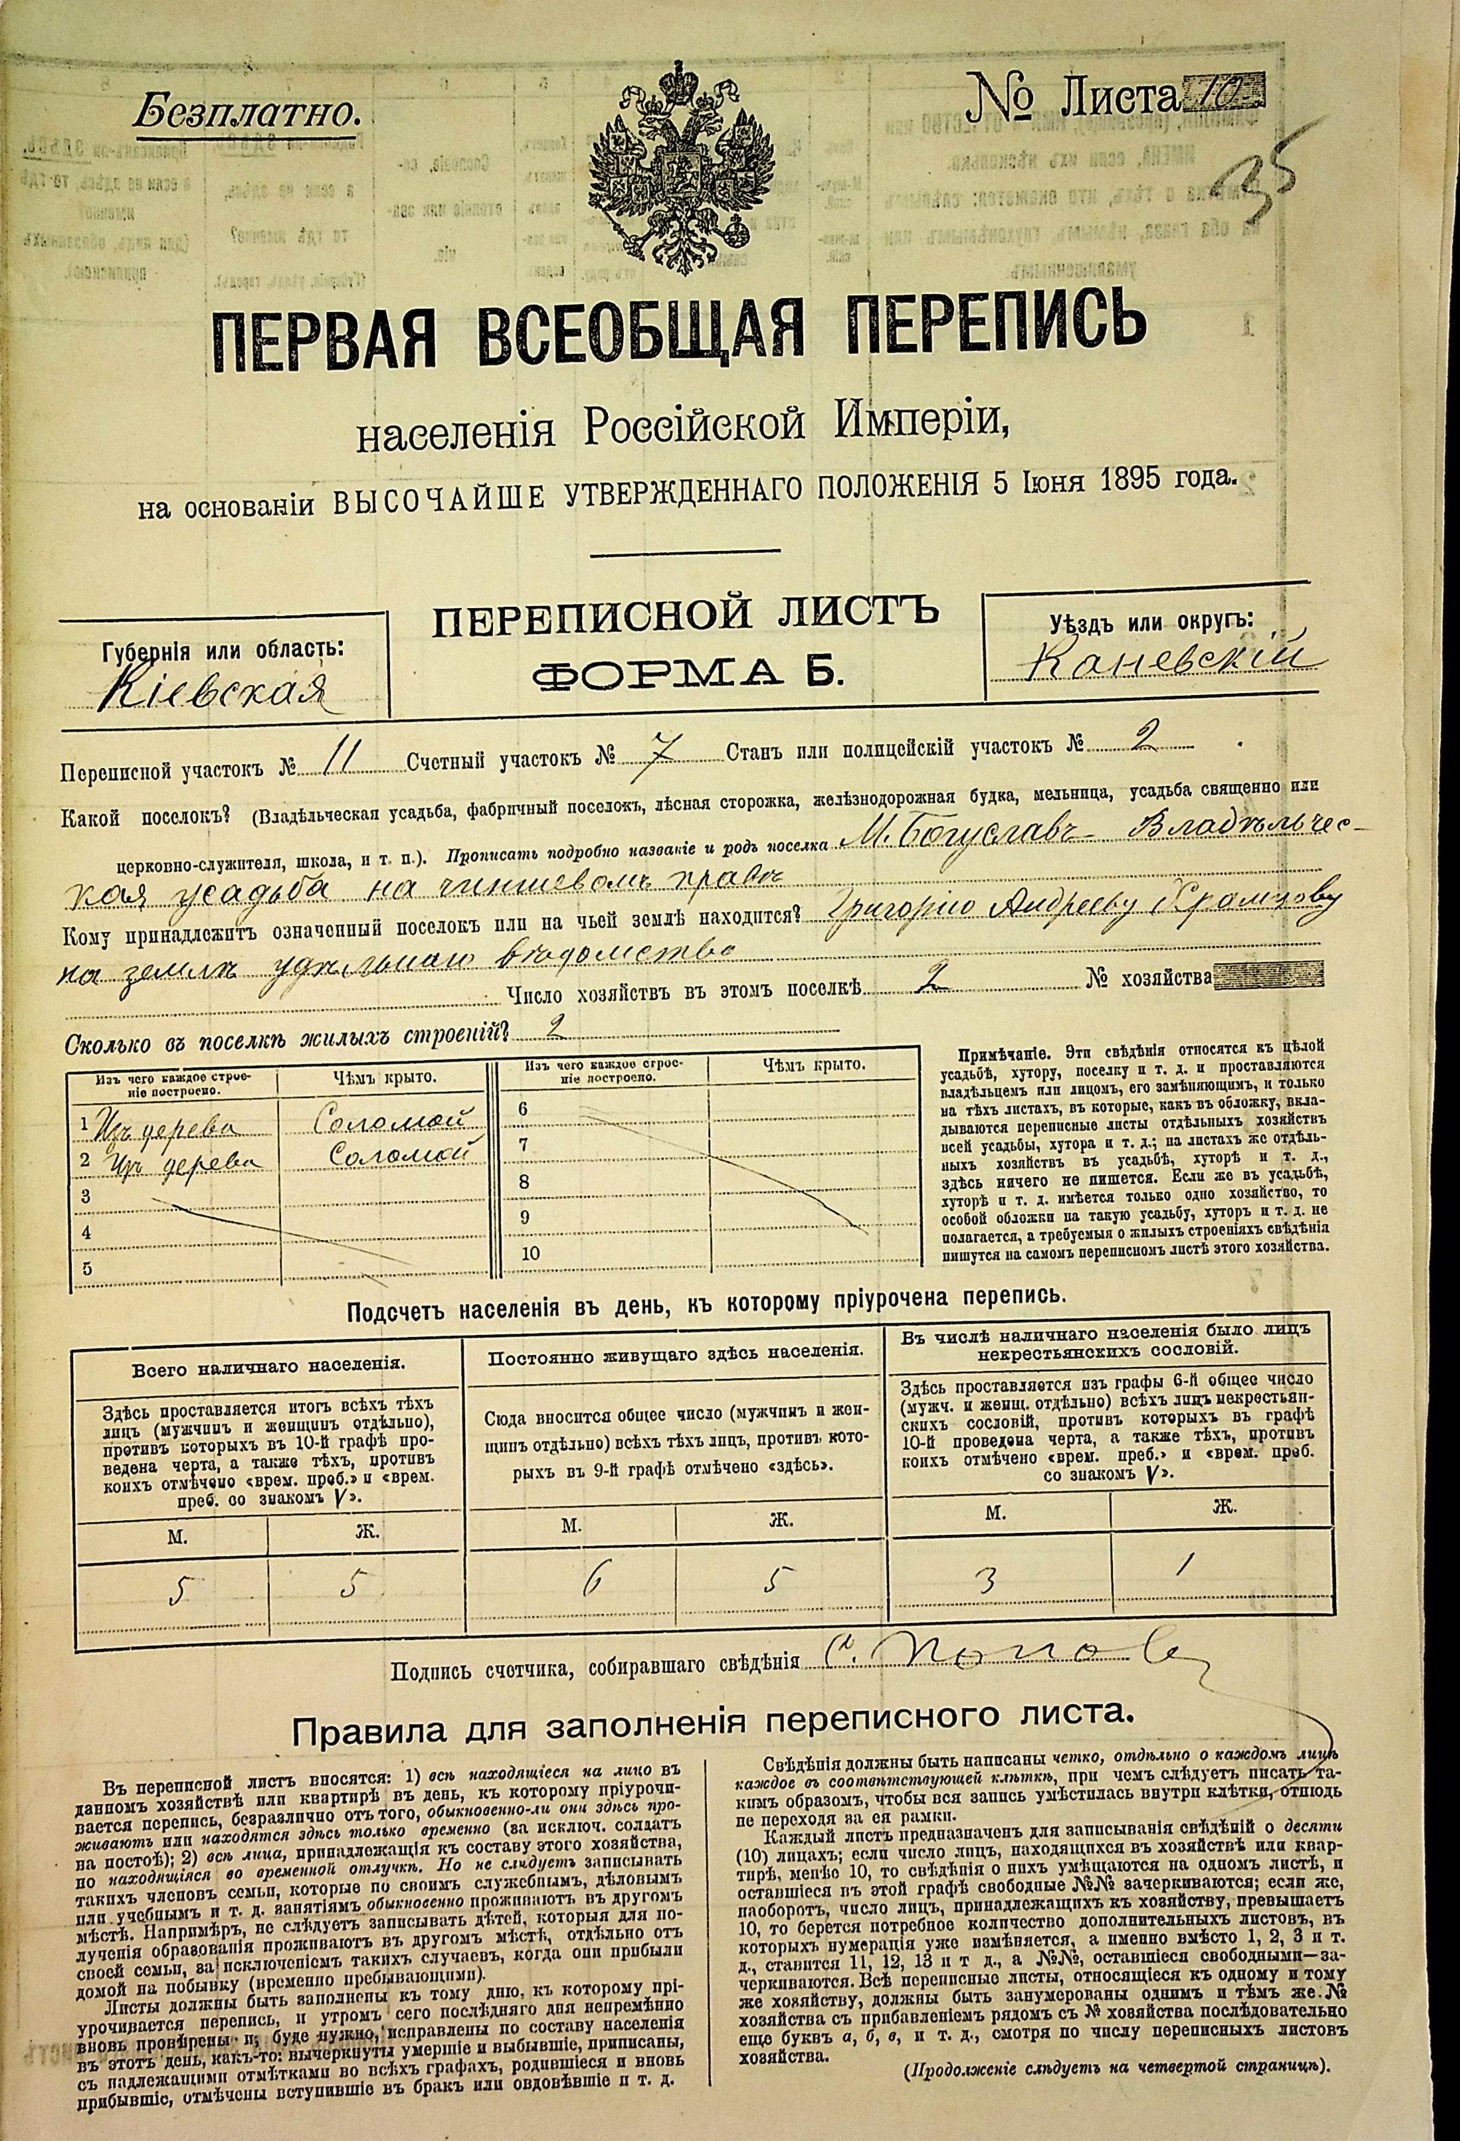 Безплатно.
№ Листа 10
35
ПЕРВАЯ ВСЕОБЩАЯ ПЕРЕПИСЬ
населенія Россійской Имперіи,
на основаніи ВЫСОЧАЙШЕ УТВЕРЖДЕННАГО ПОЛОЖЕНІЯ 5 Іюня 1895 года.
ПЕРЕПИСНОЙ ЛИСТЪ
ФОРМА Б.
Губернія или область:
Кіевская
Уѣздъ или округъ:
Каневскій
Переписной участокъ № 11 Счетный участокъ № 7 Станъ или полицейскій участокъ № 2
Какой поселокъ? (Владѣльческая усадьба, фабричный поселокъ, лѣсная сторожка, желѣзнодорожная будка, мельница, усадьба священно или
церковно-служителя, школа, и т. п.). Прописать подробно названіе и родъ поселка М. Богуславъ Владѣльчес-
кая усадьба на чиншевомъ правѣ
Кому принадлежитъ означенный поселокъ или на чьей землѣ находится? Григорію Андрееву
на землѣ удѣльнаго вѣдомства
Число хозяйствъ въ этомъ поселкѣ 2 № хозяйства
Сколько въ поселкѣ жилыхъ строеній? 2
Изъ чего каждое строе-
ніе построено.
Чѣмъ крыто.
Изъ чего каждое строе-
ніе построено.
Чѣмъ крыто.
1 Изъ дерева Соломой
2 Изъ дерева Соломой
3
4
5
6
7
8
9
10
Примѣчаніе. Эти свѣдѣнія относятся къ цѣлой
усадьбѣ, хутору, поселку и т. д. и проставляются
владѣльцемъ или лицомъ, его замѣняющимъ, и только
на тѣхъ листахъ, въ которые, какъ въ обложку, вкла-
дываются переписные листы отдѣльныхъ хозяйствъ
всей усадьбы, хутора и т. д.; на листахъ же отдѣль-
ныхъ хозяйствъ въ усадьбѣ, хуторѣ и т. д.,
здѣсь ничего не пишется. Если же въ усадьбѣ,
хуторѣ и т. д. имѣется только одно хозяйство, то
особой обложки на такую усадьбу, хуторъ и т. д. не
полагается, а требуемыя о жилыхъ строеніяхъ свѣдѣнія
пишутся на самомъ переписномъ листѣ этого хозяйства.
Подсчетъ населенія въ день, къ которому пріурочена перепись.
Всего наличнаго населенія.
Здѣсь проставляется итогъ всѣхъ тѣхъ
лицъ (мужчинъ и женщинъ отдѣльно),
противъ которыхъ въ 10-й графѣ про-
ведена черта, а также тѣхъ, противъ
коихъ отмѣчено «врем. преб.» и «врем.
преб. со знакомъ V».
М. Ж.
5 5
Постоянно живущаго здѣсь населенія.
Сюда вносится общее число (мужчинъ и жен-
щинъ отдѣльно) всѣхъ тѣхъ лицъ, противъ кото-
рыхъ въ 9-й графѣ отмѣчено «здѣсь».
М. Ж.
6 5
Въ числѣ наличнаго населенія было лицъ
некрестьянскихъ сословій.
Здѣсь проставляется изъ графы 6-й общее число
(мужч. и женщ. отдѣльно) всѣхъ лицъ некрестьян-
скихъ сословій, противъ которыхъ въ графѣ
10-й проведена черта, а также тѣхъ, противъ
коихъ отмѣчено «врем. преб.» и «врем. преб.
со знакомъ V».
М. Ж.
3 1
Подпись счетчика, собиравшаго свѣдѣнія С. Поповъ
Правила для заполненія переписного листа.
Въ переписной листъ вносятся: 1) всѣ находящіеся на лицо въ
данномъ хозяйствѣ или квартирѣ въ день, къ которому пріурочи-
вается перепись, безразлично отъ того, обыкновенно-ли они здѣсь про-
живаютъ или находятся здѣсь только временно (за исключ. солдатъ
на постоѣ); 2) всѣ лица, принадлежащія къ составу этого хозяйства,
но находящіяся во временной отлучкѣ. Но не слѣдуетъ записывать
такихъ членовъ семьи, которые по своимъ служебнымъ, дѣловымъ
или учебнымъ и т. д. занятіямъ обыкновенно проживаютъ въ другомъ
мѣстѣ. Напримѣръ, не слѣдуетъ записывать дѣтей, которыя для по-
лученія образованія проживаютъ въ другомъ мѣстѣ, отдѣльно отъ
своей семьи, за исключеніемъ такихъ случаевъ, когда они прибыли
домой на побывку (временно пребывающими).
Листы должны быть заполнены къ тому дню, къ которому прі-
урочивается перепись, и утромъ сего послѣдняго дня непремѣнно
вновь провѣрены и, буде нужно, исправлены по составу населенія
въ этотъ день, какъ-то: вычеркнуты умершіе и выбывшіе, приписаны,
съ надлежащими отмѣтками во всѣхъ графахъ, родившіеся и вновь
прибывшіе, отмѣчены вступившіе въ бракъ или овдовѣвшіе и т. д.
Свѣдѣнія должны быть написаны четко, отдѣльно о каждомъ лицѣ
каждое въ соотвѣтствующей клѣткѣ, при чемъ слѣдуетъ писать та-
кимъ образомъ, чтобы вся запись умѣстилась внутри клѣтки, отнюдь
не переходя за ея рамки.
Каждый листъ предназначенъ для записыванія свѣдѣній о десяти
(10) лицахъ; если число лицъ, находящихся въ хозяйствѣ или квар-
тирѣ, менѣе 10, то свѣдѣнія о нихъ умѣщаются на одномъ листѣ, и
оставшіеся въ этой графѣ свободные №№ зачеркиваются; если же,
наоборотъ, число лицъ, принадлежащихъ къ хозяйству, превышаетъ
10, то берется потребное количество дополнительныхъ листовъ, въ
которыхъ нумерація уже измѣняется, а именно вмѣсто 1, 2, 3 и т.
д., ставится 11, 12, 13 и т д., а №№, оставшіеся свободными—за-
черкиваются. Всѣ переписные листы, относящіеся къ одному и тому
же хозяйству, должны быть занумерованы однимъ и тѣмъ же №
хозяйства съ прибавленіемъ рядомъ съ № хозяйства послѣдовательно
еще буквъ а, б, в, и т. д., смотря по числу переписныхъ листовъ
хозяйства.
(Продолженіе слѣдуетъ на четвертой страницѣ).